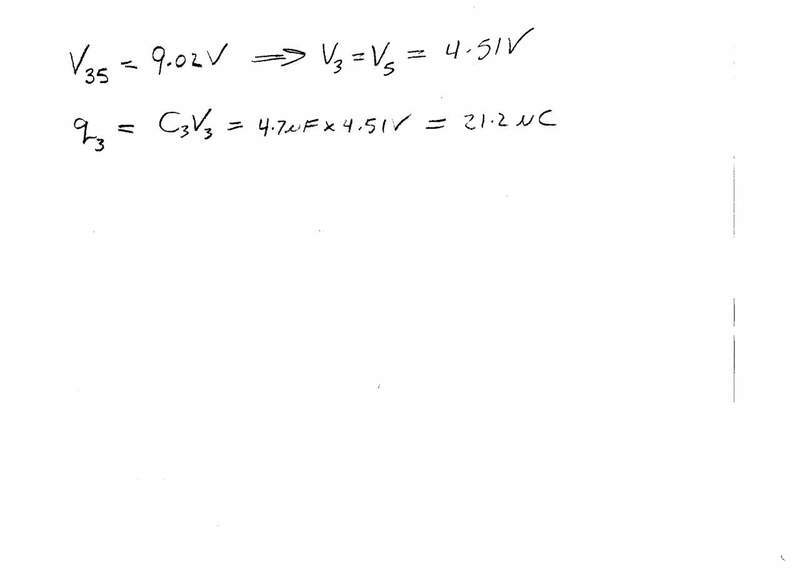 V₃₅ = 9.02V ⟹ V₃ = V₅ = 4.51V
q₃ = C₃V₃ = 4.7μF × 4.51V = 21.2 μC